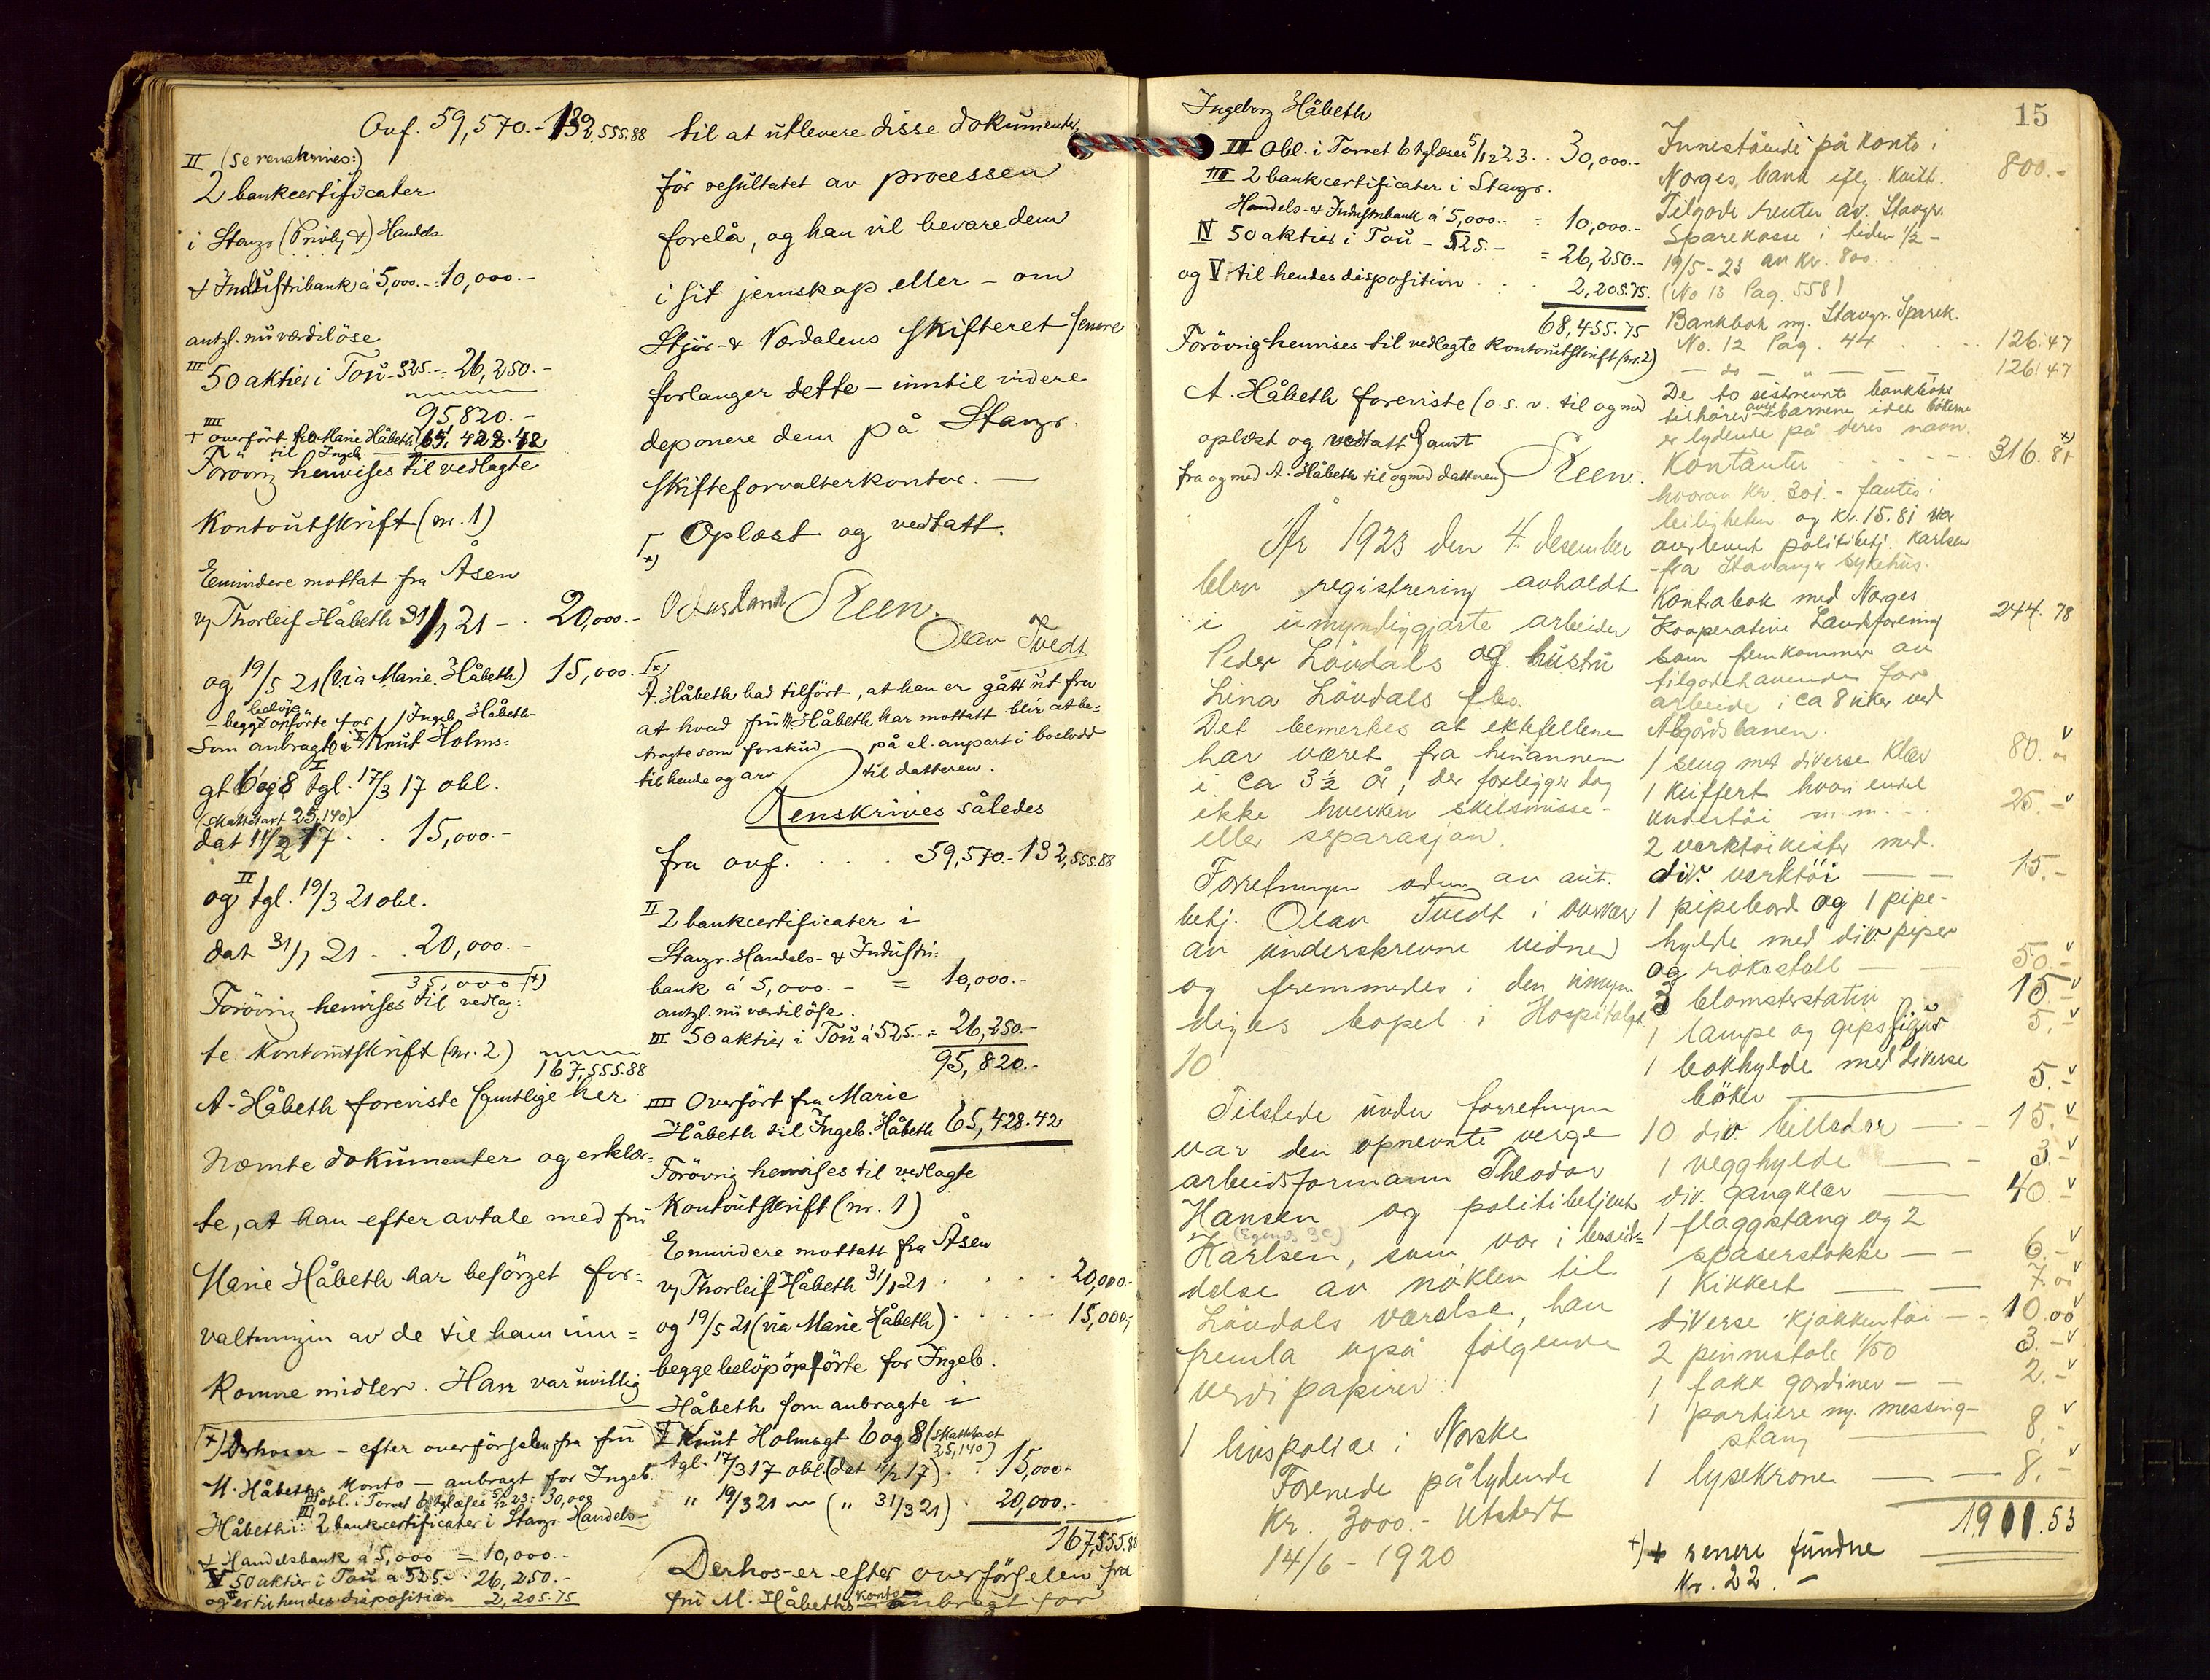 Ovf. 59,570.- 132,555.88
II (se renskrives:)
2 bankcertificater
i Stavgr (Privby &) Handels
& Industribank á 5,000.- 10,000.-
antgl. nu værdilöse
III 50 aktier i Tou - 525.- = 26,250.-
95820.-
IIII + overfört fra Marie Håbeth 65,428.42
til Ingeb.
Forövrig henvises til vedlagte
Kontoutskrift (nr. 1)
Enmidere mottat fra Åsen
v/ Thorleif Håbeth 31/1 21 - . 20,000.-
og 19/5 21 (via Marie Håbeth) 15,000.-
- begge belöp opförte for Ingeb. Håbeth-
som anbragte i I Knut Holms=
gt 6 og 8 tgl. 17/3 17 obl.
(skattetaxt 25,140)
dat 11/2 17 . . 15,000.-
og II tgl. 19/3 21 obl.
dat 31/1 21 . . 20,000.-
35,000 (x)
Forövrig henvises til vedlag=
te Kontoutskrift (nr. 2)
167,555.88
A. Håbeth foreviste samtlige her
nævnte dokumenter og erklær=
te, at han efter avtale med fru
Marie Håbeth har besörget for=
valtningen av de til ham inn=
komne midler. Han var uvillig
(x) Derhos er - efter overförselen fra fru
M. Håbeths konto - anbragt for Ingeb.
III obl. i Tornet 6 tglæses 5/12 23: 30,000
Håbeth i: III 2 bankcertificater i Stavgr. Handels-
& Handelsbank á 5,000 = 10,000.-
IV 50 aktier i Tou á 525.- 26,250.-
og V er til hendes disposition 2,205.75
til at utlevere disse dokumenter,
för resultatet av processen
forelå, og han vil bevare dem
i sit jernskap eller - om
Stjör- & Værdalens skifteret senere
forlanger dette - inntil videre
deponere dem på Stavgr.
skifteforvalterkontor. -
x) Oplæst og vedtatt.
O. Ausland Steen.
Olav Tvedt
x)
A. Håbeth bad tilfört, at han er gått ut fra
at hvad fru M. Håbeth har mottatt blir at be=
tragte som forskud på el. anpart i boslodd
til hende og arv til datteren.
Renskrives således
fra ovf. . . . . 59,570.- 132,555.88
II 2 bankcertificater i
Stavgr. Handels- & Industri=
bank á 5,000.- = 10,000.-
antgl. nu værdilöse.
III 50 aktier i Tou á 525.- = 26,250.-
95,820.-
IIII Overfört fra Marie
Håbeth til Ingeb. Håbeth 65,428.42
Forövrig henvises til vedlagte
Kontoutskrift (nr. 1)
Enmidere mottatt fra Åsen
v/ Thorleif Håbeth 31/1 21 . . . . 20,000.-
og 19/5 21 (via Marie Håbeth) . . . . 15,000,-
begge belöp opförte for Ingeb.
Håbeth som anbragte i
I Knut Holmsgt 6 og 8 (skattetaxt
25,140)
tgl. 17/3 17 obl. (dat 11/2 17) . . 15,000.-
" 19/3 21 " (" 31/3 21) . 20,000.-
167,555.88
Derhos-er efter overförselen fra
fru M. Håbeths konto - anbragt for
15
Ingeborg Håbeth
III Obl. i Tornet 6 tglæses 5/12 23 . . 30,000.-
III 2 bankcertificater i Stavgr.
Handels- & Industribank á 5,000.. = 10,000.-
IV 50 aktier i Tou - 525.- = 26,250.-
og V til hendes disposition . . . 2,205.75.
68,455.75
Forövrig henvises til vedlagte kontoutskrift (nr. 2)
A. Håbeth foreviste (o.s.v. til og med
oplæst og vedtatt) samt
fra og med A. Håbeth til og med datteren) Steen.
År 1923 den 4. desember
blev registrering avholdt
i umyndiggjorte arbeider
Peder Lövdals og hustru
Lina Lövdals f[...]bo.
Det bemerkes at ektefellene
har været fra hinannen
i ca 3½ år, der foreligger dog
ikke hverken skilsmisse-
eller separasjon.
Forretningen adm. av aut.
betj. Olav Tvedt i overvær
av underskrevne vidner
og fremmedes i den umyn-
diges bopel i Hospitalgt
10
Tilstede under forretningen
var den opnevnte verge
arbeidsformann Theodor
Hansen og politibetjent
(Egenes 3c)
Karlsen, som var i besid=
delse av nöklen til
Lövdals værelse, han
fremla også fölgende
verdipapirer:
1 livspolice i Norske
Forenede pålydende
Kr. 3000.- Utstedt
14/6 - 1920
Innestående på konto i
Norges bank iflg. kvitt. 800.-
Tilgode renter av. Stavgr.
Sparekasse i tiden 1/2 -
19/5 - 23 av kr. 800. . .
(No 13 Pag. 558)
Bankbok ny. Stavgr. Sparek.
No. 12 Pag. 44 . . . . 126.47
- do - " - - - 126.47
De to sistnevnte bankböker
tilhörer over barnene idet bökene
er lydende på deres navn.
Kontanter - - - - - 316.81 x)
hvorav kr. 301.- fantes i
leiligheten og kr. 15.81 var
overlevert politibetj. Karlsen
fra Stavanger sykehus.
Kontrabok med Norges
Kooperative Landsforening 244.78
som fremkommer av
tilgodehavende for
arbeide i ca 8 uker ved
Ålgårdsbanen.
1 seng med diverse klær 80.00
1 kuffert hvori endel
undertöi m.m. - - 25.-
2 verktöikister med.
div. verktöi - - 15.-
1 pipebord og 1 pipe-
hylde med div. piper
og rökestoll - - 50.-
3 blomsterstativ 15.-
1 lampe og gipsfigur 5.-
1 bokhylde med diverse
böker - 5.-
10 div. billeder - - 15.-
1 vegghylde - - 3.-
div. gangklær - 40.-
1 flaggstang og 2
spaserstokke - - 6.-
1 Kikkert - - 7.00
diverse kjökkentöi - - 10.00
2 pinnestole 1/50 3.-
1 fakk gardiner - - 2.-
1 portiere m. messing-
stang - 8.-
1 lysekrone - - 8.-
1911.53
+) + senere fundne
Kr. 22.-